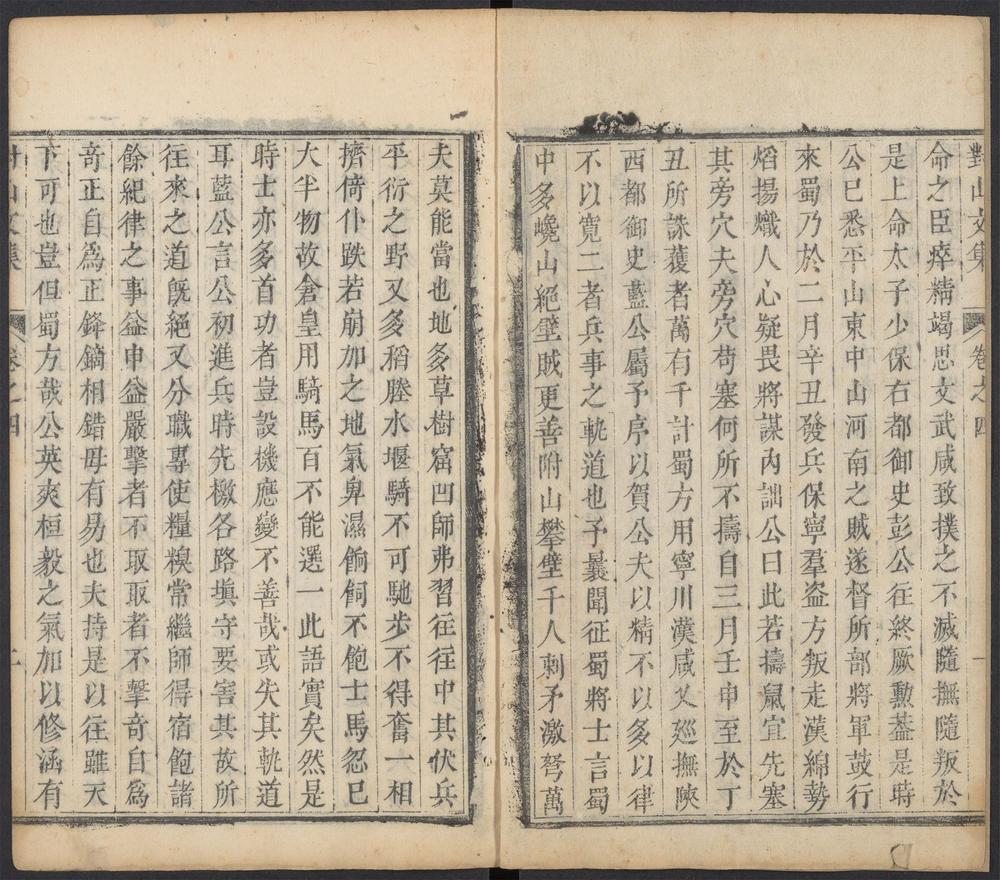 對山文集 卷之四 一
命之臣瘁精竭思文武咸致撲之不滅隨撫隨叛於
是上命太子少保右都御史彭公往終厥勲葢是時
公已悉平山東中山河南之賊遂督所部將軍鼓行
來蜀乃於二月辛丑發兵保寧羣盗方叛走漢綿勢
熖揚熾人心疑畏將謀內詘公曰此若擣鼠宜先塞
其旁穴夫旁穴苟塞何所不擣自三月壬申至於丁
丑所誅䕶者萬有千計蜀方用寧川漢咸乂廵撫陝
西都御史藍公屬予序以賀公夫以精不以多以律
不以寛二者兵事之軌道也予曩聞征蜀將士言蜀
中多巉山絕壁賊更善附山攀壁千人刺矛激弩萬
夫莫能當也地多草樹窟凹師弗習往往中其伏兵
平衍之野又多稻塍水堰騎不可馳步不得奮一相
擠倚仆跌若崩加之地氣𤰞濕餉飼不飽士馬忽巳
大半物故倉皇用騎馬百不能選一此語實矣然是
時士亦多首功者豈設機應變不善哉或失其軌道
耳藍公言公初進兵時先檄各路塡守要害其故所
往來之道旣絕又分職專使糧糗常繼師得宿飽諸
餘紀律之事益申益嚴擊者不取取者不擊奇自爲
奇正自爲正鋒鏑相錯毋有易也夫持是以往雖天
下可也豈但蜀方哉公英爽桓毅之氣加以修涵有
對山文集 卷之四 二